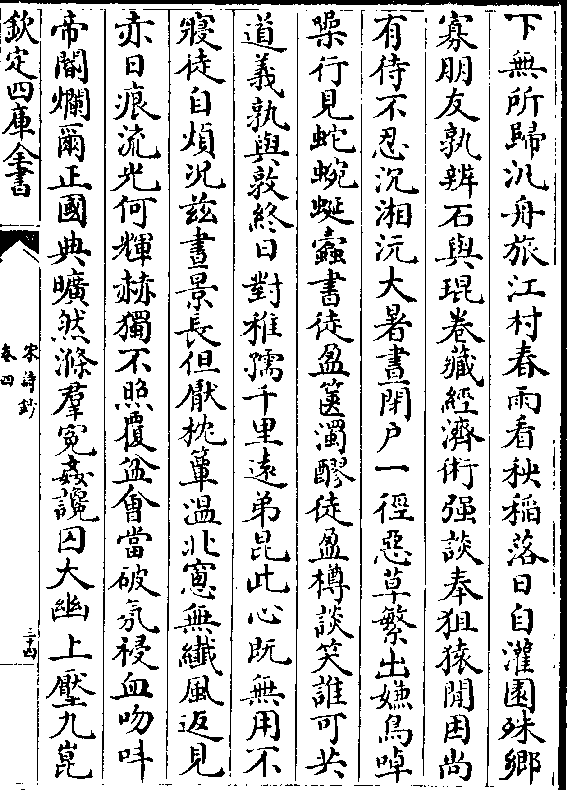 下無所歸汎舟旅江村春雨看秧稻落日自灌園殊鄉
寡朋友孰辨石與琨卷藏經濟術强談奉狙猿閒困尚
有待不忍沉湘沅大暑晝閉户一徑惡草繁出嫌鳥啅
噪行見蛇蜿蜒蠧書徒盈篋濁醪徒盈樽談笑誰可共
道義孰與敦終日對稚孺千里遠弟昆此心既無用不
寢徒自煩况兹晝景長但厭枕簟温北窻無纖風返見
赤日痕流光何輝赫獨不照覆盆會當破氛祲血吻呌
帝閽爛爾正國典曠然滌羣寃姦讒囚大幽上壓九崑
欽定四庫全書
宋詩鈔
卷四
三十四